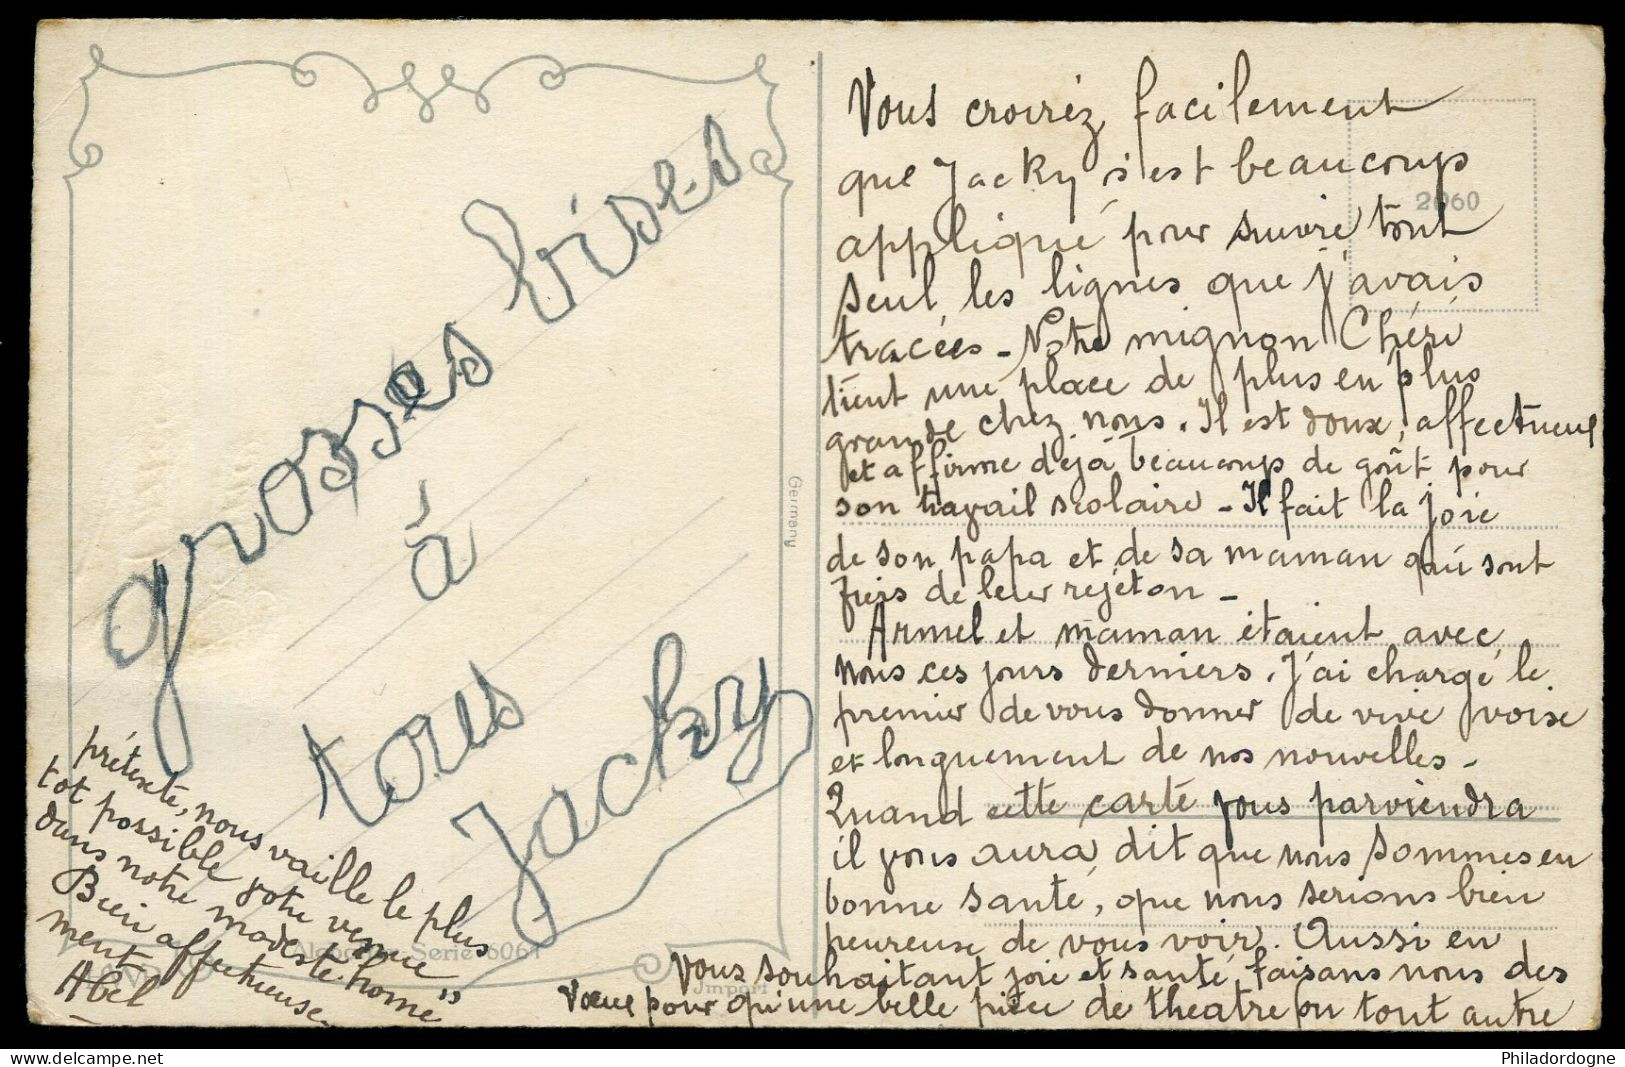 grosses bises
à
tous
Jacky
Vous croirez facilement
que Jacky s'est beaucoup
appliqué pour suivre tout
seul les lignes que j'avais
tracées - Notre mignon Chéri
tient une place de plus en plus
grande chez nous. Il est doux, affectueux
et affirme déjà beaucoup de goût pour
son travail scolaire - Il fait la joie
de son papa et de sa maman qui sont
fiers de leur rejeton -
Armel et maman étaient avec
nous ces jours derniers. J'ai chargé le
premier de vous donner de vive voix
et longuement de nos nouvelles -
Quand cette carte vous parviendra
il vous aura dit que nous sommes en
bonne santé, que nous serions bien
heureuse de vous voir. Aussi en
vous souhaitant joie et santé, faisans nous des
vœux pour qu'une belle pièce de theatre ou tout autre
prétexte, nous vaille le plus
tot possible votre venue
dans notre modeste "home"
Bien affectueuse-
ment
Abel
2060
Germany
Serie 6061
Import
Philadordogne